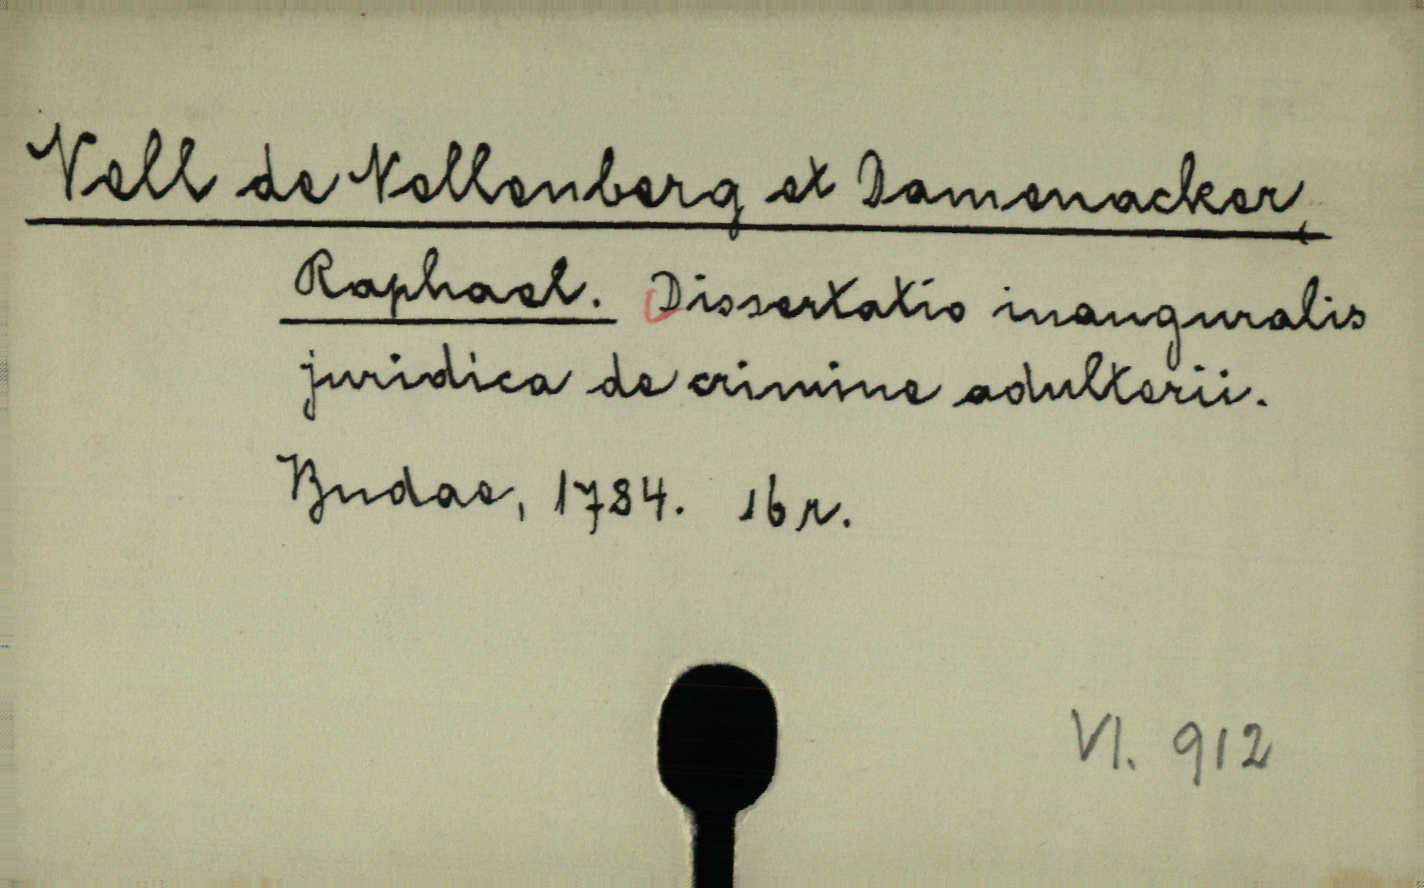 Nell de Nellenberg et Damenacker,
Raphael. Dissertatio inauguralis
juridica de crimine adulterii.
Budae, 1784. 16 r.
VI. 912